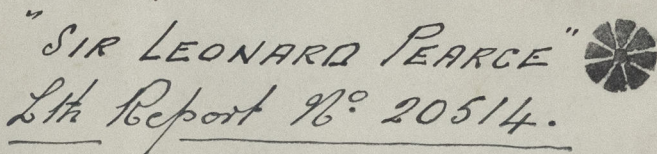 "SIR LEONARD PEARCE"
Lth Report No. 20514.